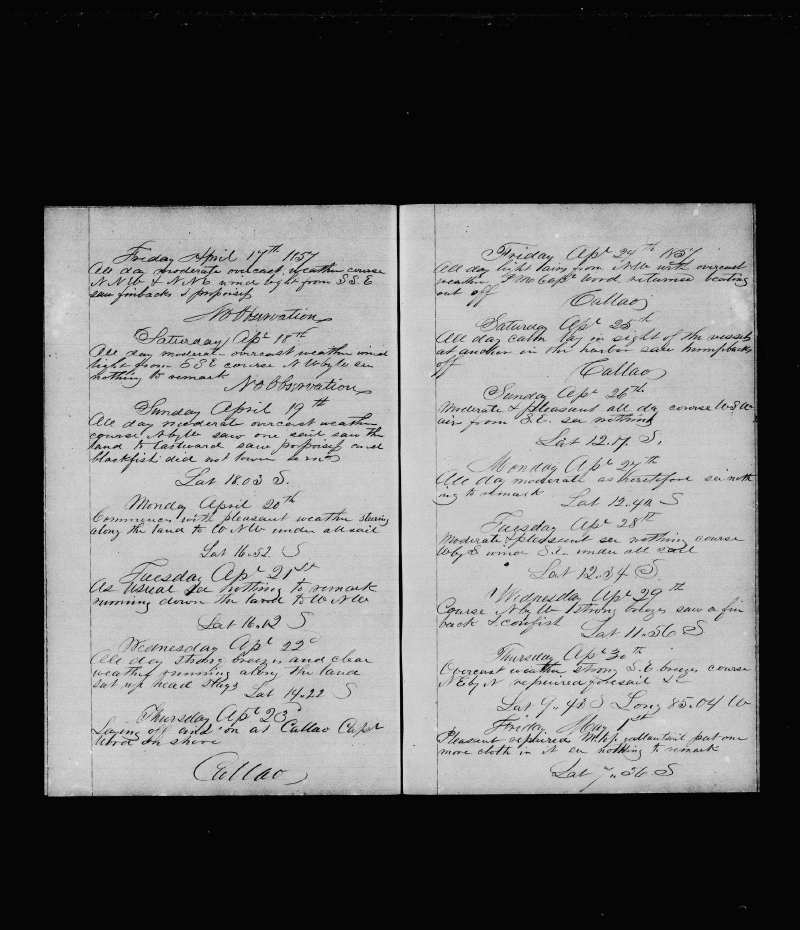 Friday April 17th 1857
All day moderate overcast weather course
N.N.W & N.N.E wind light from S.S.E
saw finbacks & porpoises
No Observation
Saturday Apl 18th
All day moderate overcast weather wind
light from ESE course N W by W see
nothing to remark No Observation
Sunday April 19th
All day moderate overcast weather
course N by W saw one sail saw the
land to eastward saw porpoises and
blackfish did not lower
Lat 18.03 S.
Monday April 20th
Commences with pleasant weather stering
along the land to W NW under all sail
Lat 16.52. S
Tuesday Apl 21st
As usual see nothing to remark
running down the land to W NW
Lat 16.12 S
Wednesday Apl 22d
All day strong breezes and clear
weather running along the land
sat up head stays Lat 14.22 S
Thursday Apl 23d
Laying off and on at Callao Capt
Word on shore
Callao
Friday Apl 24th 1857
All day light airs from N.W with overcast
weather P M Capt Word returned beating
out off
Callao
Saturday Apl 25th
All day calm lay in sight of the vessels
at anchor in the harbor saw humpbacks
off Callao
Sunday Apl 26th
Moderate & pleasant all day course WSW
air from S.E. see nothing
Lat 12.17 S.
Monday Apl 27th
All day moderate as heretofore see noth
ing to remark Lat 12.42 S
Tuesday Apl 28th
Moderate & pleasant see nothing course
W by S wind S.E. under all sail
Lat 12.34 S.
Wednesday Apl 29th
Course N by W strong breezes saw a fin
back & cowfish Lat 11.56 S
Thursday Apl 30th
Overcast weather strong S.E. breezes course
N E by N repaired foresail
Lat 9.43 S Long 85.04 W
Friday May 1st
Pleasant repaired gallantsail put one
more cloth in it see nothing to remark
Lat 7.36 S